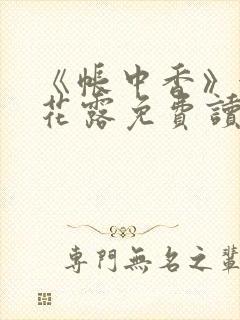 《帳中香》
花露免費讀
專門無名之輩